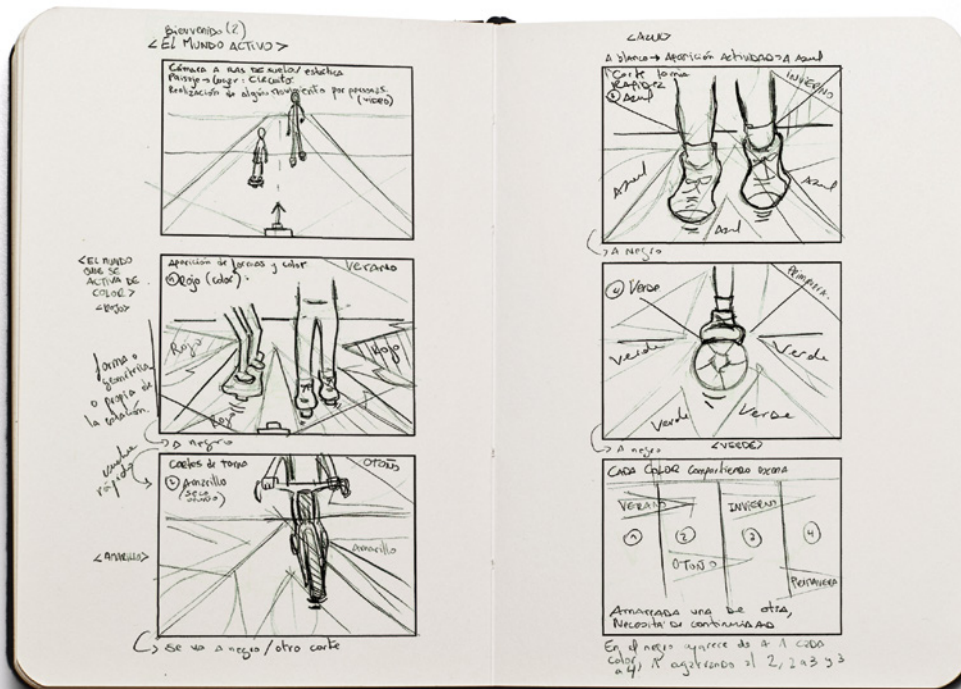 Bienvenido (2)
<EL MUNDO ACTIVO>
Cámara A RAS DE SUELO/ estática
Paisaje → Lugar: Circuito
Realización de algún movimiento por personas
(VIDEO)
<EL MUNDO
QUE SE
ACTIVA DE
COLOR>
<ROJO>
Aparición de formas y color
VERANO
① Rojo (color):
Rojo
Rojo
Rojo
forma o
geométrica
o propia de
la estación.
A negro
vuelve
rápido
Cortes de toma
OTOÑO
② Amarillo
(seco
Amarillo
<AMARILLO>
Se va A negro/otro corte
<AZUL>
A blanco → Aparición Actividad → A Azul
Corte toma
RAPIDEZ
Azul
INVIERNO
Azul
Azul
Azul
A Negro
④ Verde
PRIMAVERA
Verde
Verde
Verde
Verde
A negro
<VERDE>
CADA COLOR compartiendo escena
VERANO
INVIERNO
①
②
③
④
OTOÑO
PRIMAVERA
AMARRADA UNA DE OTRA,
NECESITA DE CONTINUIDAD
En el negro aparece de a 1 CADA
color, 1 agarrando al 2, 2 a 3 y 3
a 4